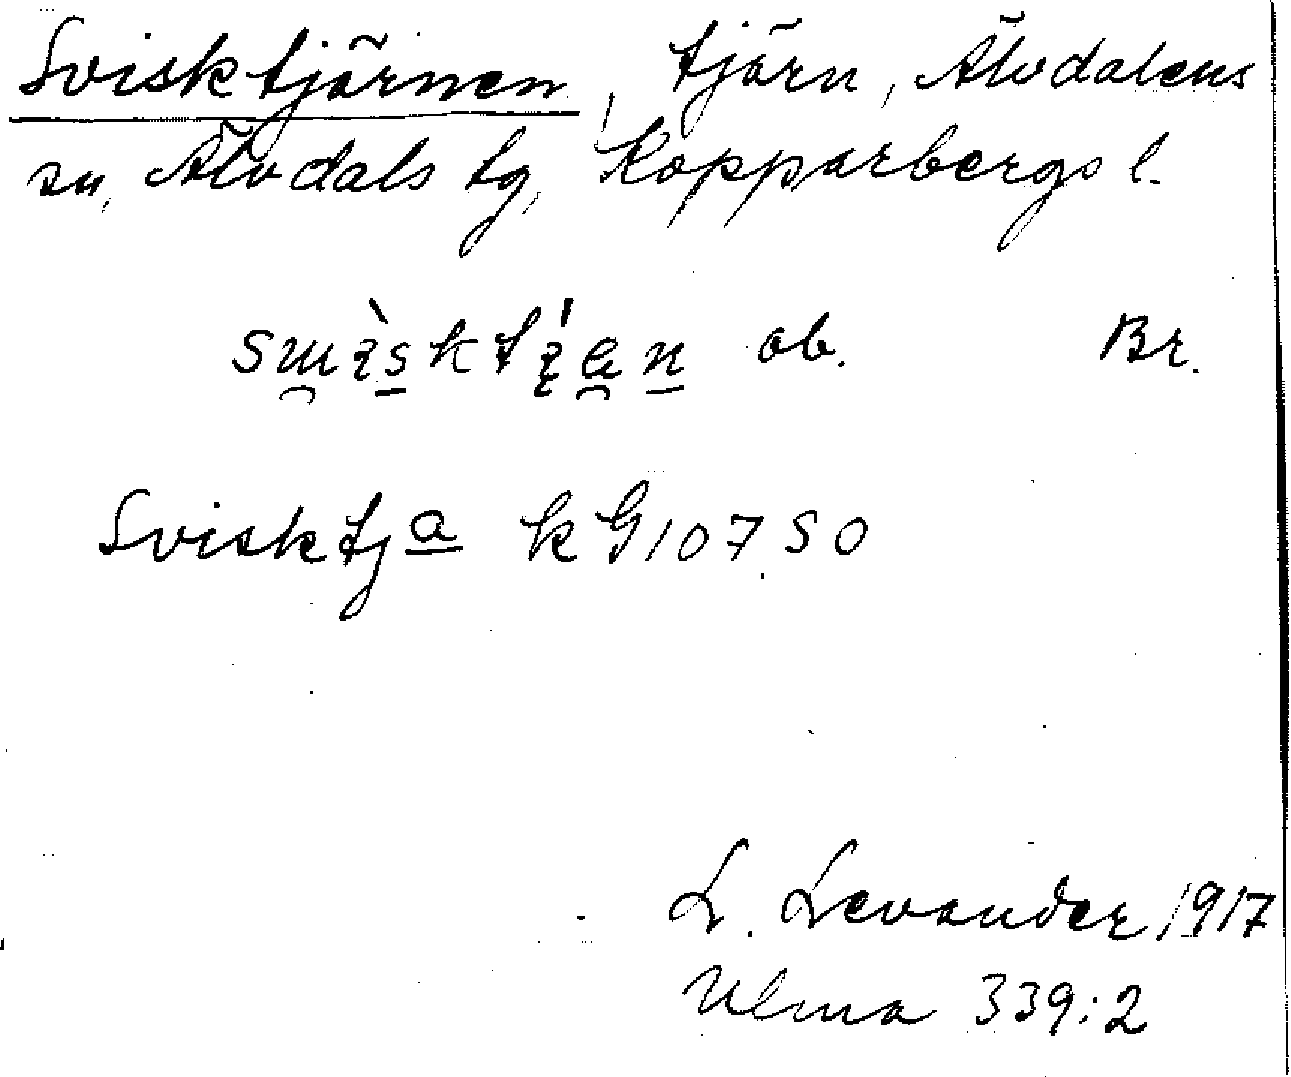 Svisktjärnen, tjärn, Älvdalens
sn, Älvdals tg, Kopparbergs l.
ob. Br.
Svisktja kG 10750
L. Levander 1917
Ulma 339:2